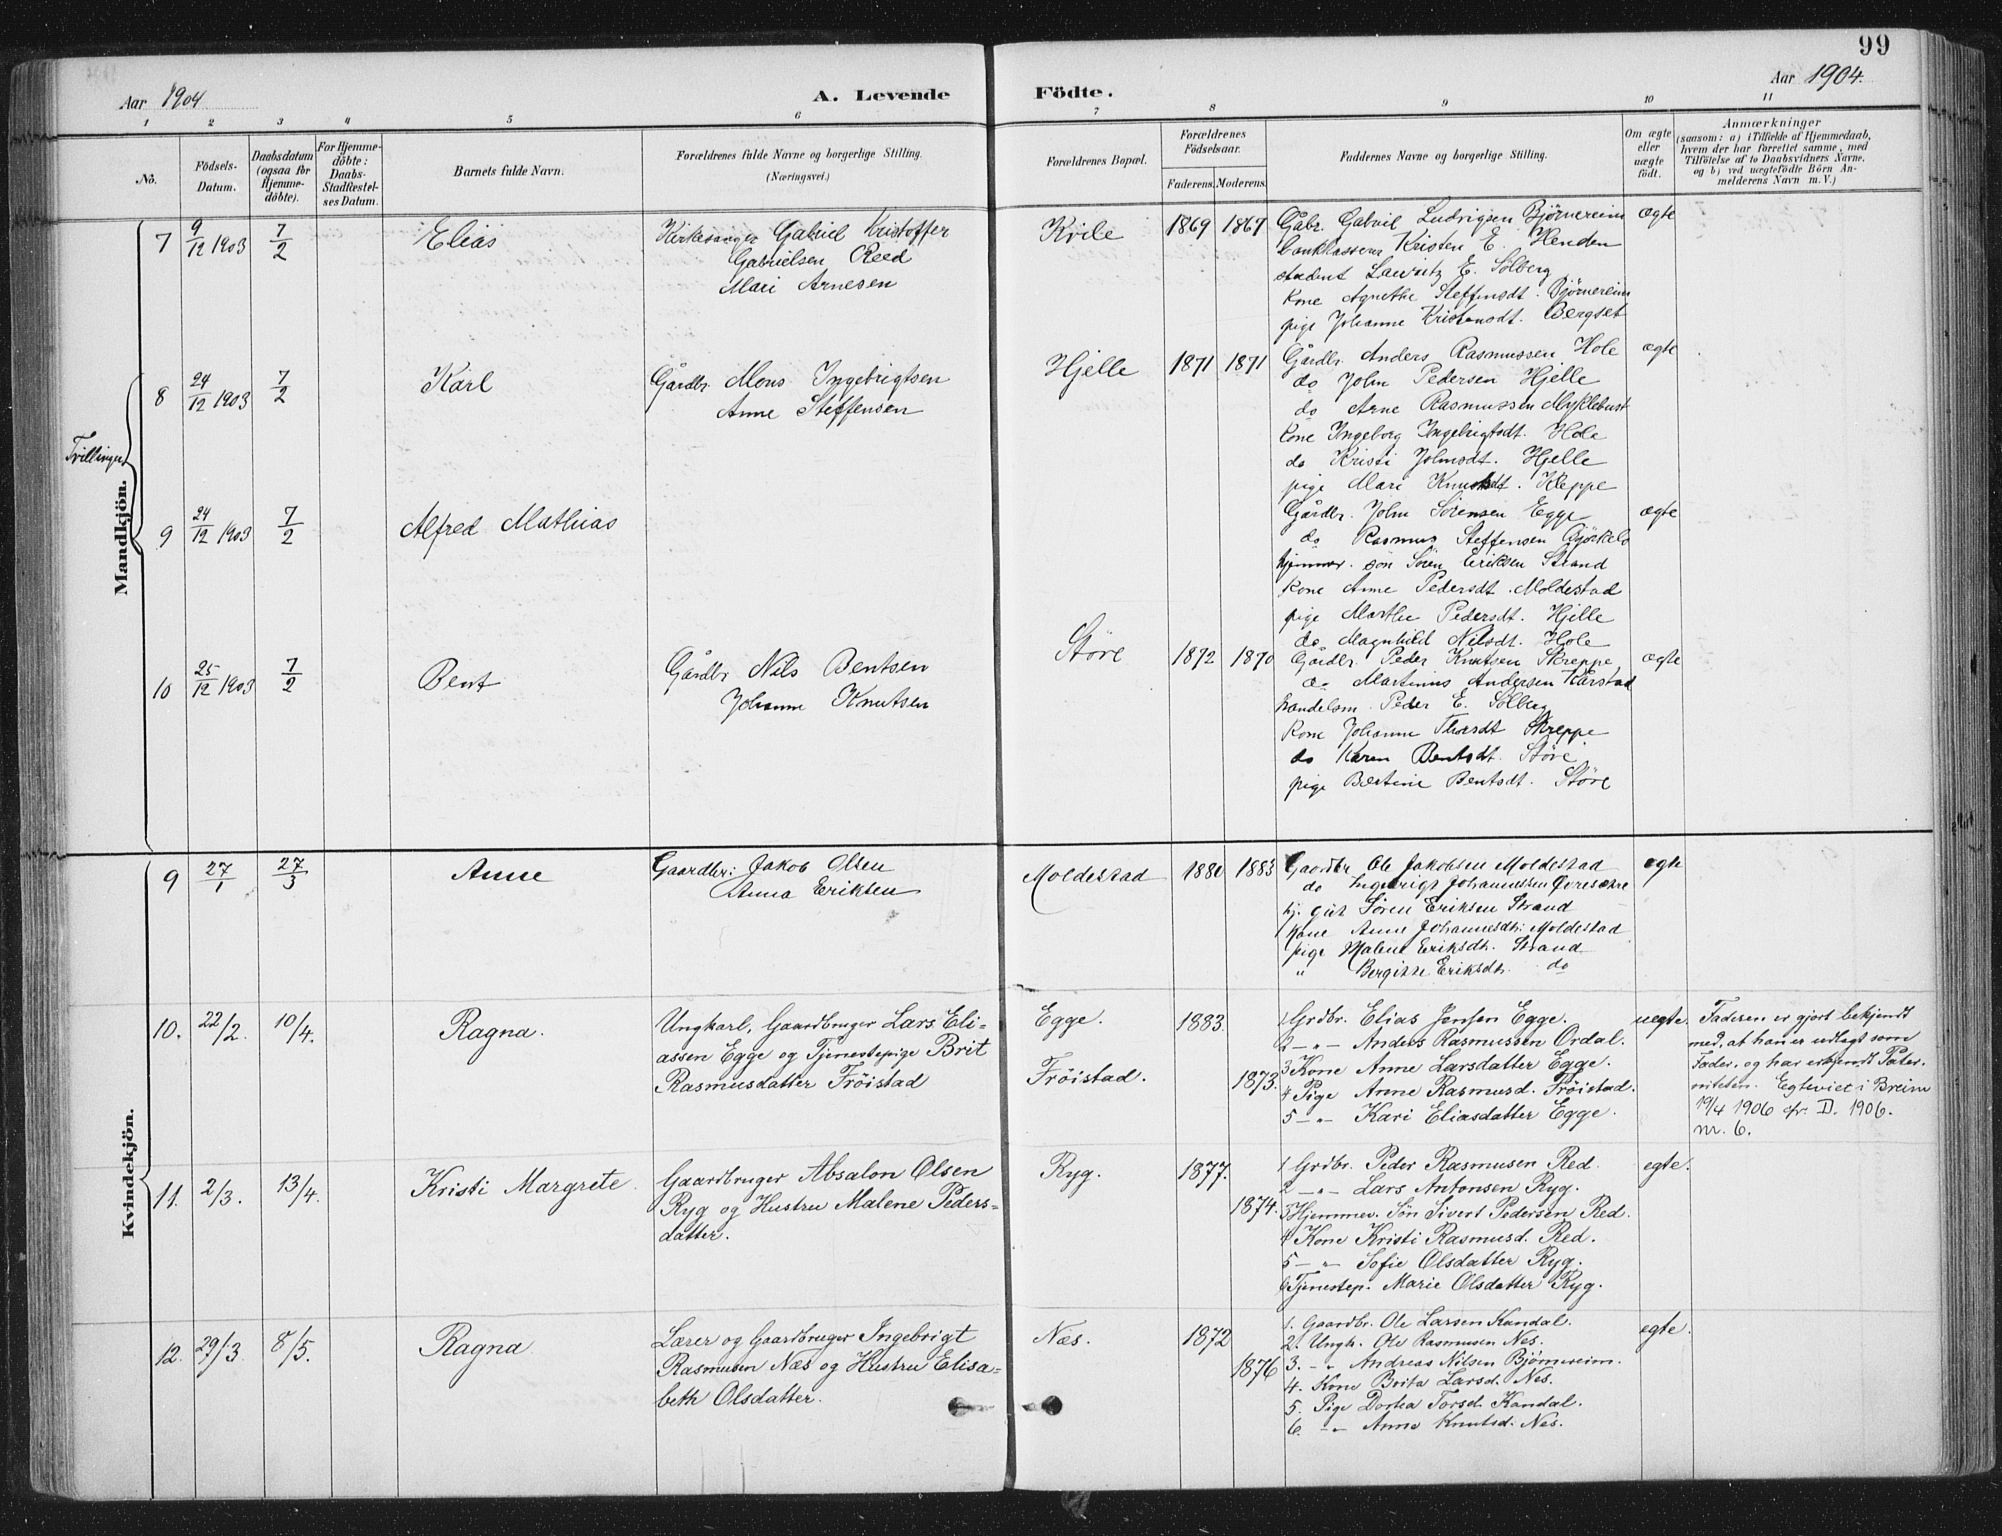 99
Aar 1904
A. Levende
Födte.
Aar 1904.
1 2 3 4 5 6 7 8 9 10 11
No.
Födsels-
Datum.
Daabsdatum
(ogsaa for
Hjemme-
döbte).
For Hjemme-
döbte:
Daabs-
Stadfæstel-
ses Datum.
Barnets fulde Navn.
Forældrenes fulde Navne og borgerlige Stilling.
(Næringsvei.)
Forældrenes Bopæl.
Forældrenes
Födselsaar.
Faderens. Moderens.
Faddernes Navne og borgerlige Stilling.
Om ægte
eller
uægte
födt.
Anmærkninger
(saasom: a) i Tilfælde af Hjemmedaab,
hvem der har forrettet samme, med
Tilföielse af to Daabsvidners Navne.
og b) ved uægtefödte Börn An-
melderens Navn m. V.)
Mandkjön.
Tvillinger
7 9/12 1903 7/2 Elias
Kirkesanger Gabriel Kristoffer
Gabrielsen Reed
Mari Arnesen
Kvile 1869 1867
Gåbr. Gabriel Ludvigsen Bjørnereim
bankkasserer Kristen E. Henden
student Lauritz E. Solberg
kone Agnethe Steffensdt. Bjørnereim
pige Johanne Kristensdt. Bergset
ægte
8 24/12 1903 7/2 Karl
Gårdbr. Mons Ingebrigtsen
Anne Steffensen
Hjelle 1871 1871
Gårdbr. Anders Rasmussen Hole
do John Pedersen Hjelle
do Arne Rasmussen Myklebust
kone Ingeborg Ingebrigtsdt. Hole
do Kristi Johnsdt. Hjelle
pige Mari Knutsdt. Kleppe
ægte
9 24/12 1903 7/2 Alfred Mathias
Gårdbr. John Sørensen Egge
do Rasmus Steffensen Bjørkelo
hjemmev. søn Søren Eriksen Strand
kone Anne Pedersdt. Moldestad
pige Marthe Pedersdt. Hjelle
do Magnhild Nilsdt. Hole
ægte
10 25/12 1903 7/2 Bent
Gårdbr Nils Bentsen
Johanne Knutsen
Støre 1872 1870
Gårdbr. Peder Knutsen Skreppe
do Martinus Andersen Kårstad
handelsm. Peder E. Solberg
kone Johanne Thordt Skreppe
do Karen Bentsdt. Støre
pige Bertine Bentsdt. Støre
ægte
Kvindekjön.
9 27/1 27/3 Anne
Gaardbr: Jakob Olsen
Anna Eriksen
Moldestad 1880 1883
Gaardbr Ole Jakobsen Moldestad
do Ingebrigt Johannessen Øvresætre
hj. gut Søren Eriksen Strand
kone Anne Johannesdt: Moldestad
pige Malene Eriksdt. Strand
" Bergitte Eriksdt. do
ægte
10. 22/2. 10/4. Ragna.
Ungkarl, Gaardbruger Lars Eli-
assen Egge og Tjenestepige Brit
Rasmusdatter Frøistad
Egge.
Frøistad.
1883.
1873.
1 Grdbr. Elias Jensen Egge.
2 – " – Anders Rasmussen Ordal.
3 Kone Anne Larsdatter Egge.
4 Pige Anne Rasmusd. Frøistad.
5 – " – Kari Eliasdatter Egge.
uegte.
Faderen er gjort bekjendt
med, at han er udlagt som
Fader, og har erkjendt Pater-
niteten. Egteviet i Breim
19/4 1906 cfr. D. 1906.
nr. 6.
11. 2/3. 13/4. Kristi Margrete.
Gaardbruger Absalon Olsen
Ryg og Hustru Malene Peders-
datter.
Ryg. 1877. 1874.
1 Grdbr. Peder Rasmusen Red.
2 – " – Lars Antonsen Ryg.
3 Hjemmev. Søn Sivert Pedersen Red.
4 Kone Kristi Rasmusd. Red.
5 – " – Sofie Olsdatter Ryg.
6 Tjenestep. Marie Olsdatter Ryg.
egte.
12. 29/3. 8/5. Ragna
Lærer og Gaardbruger Ingebrigt
Rasmusen Næs og Hustru Elisa-
beth Olsdatter.
Næs. 1872 1876
1. Gaardbr. Ole Larsen Kandal.
2. Ungk. Ole Rasmusen Nes.
3. – " – Andreas Nilsen Bjørnereim.
4. Kone Brita Larsd. Nes.
5. Pige Dortea Torsd. Kandal.
6. – " – Anne Knutsd. Nes.
egte.